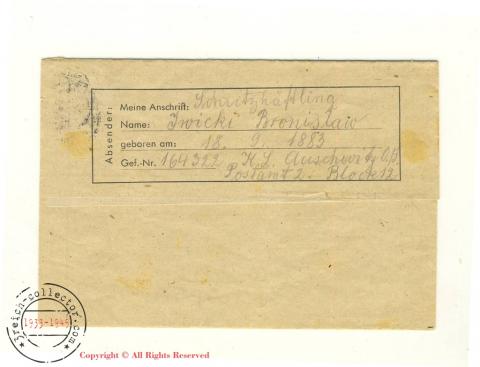 Absender:
Meine Anschrift: Schutzhäftling
Name: Iwicki Bronisław
geboren am: 18. 9. 1883
Gef.-Nr. 164322 K.L. Auschwitz O/S.
Postamt 2. Block 12
*3reich-collector.com*
1933-1945
Copyright © All Rights Reserved